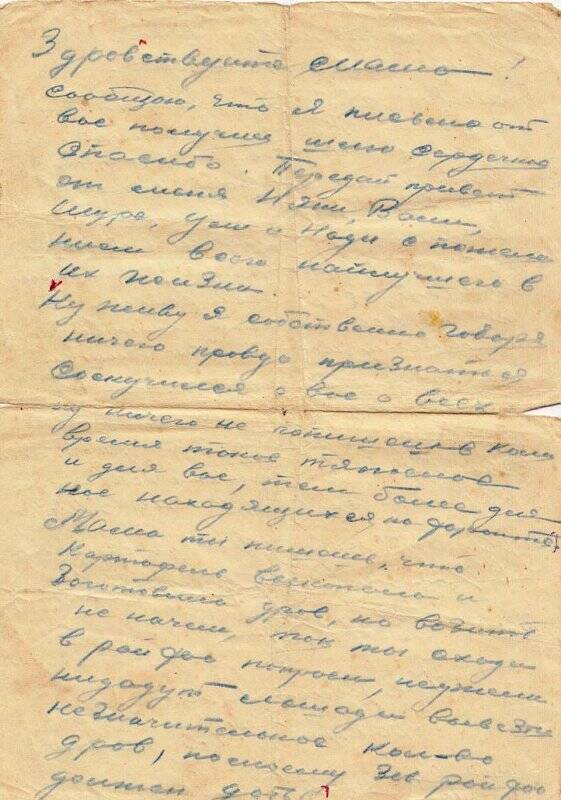 Здровствуйте мама!
Сообщою, что я письмо от
вас получил шлю сердечно
спасибо. Передай привет
от меня Нюни, Васи,
Шуре, и Нади с пожела
нием всего найлучшего в
их жизни
Ну живу я собственно говоря
ничего провдо признаться
соскучился о вас о всех
ну ничего не попишешь коль
время такое тяжолое
и для вас, тем более для
нас находящихся на фронте.
Мама ты пишешь, что
картофель выкопала и
заготовила дров, но возить
не начем, так ты сходи
в райфо попроси, неужели
нидадут лошадь вывезти
незначительное кол-во
дров, поскольку зав райфо
должен дать